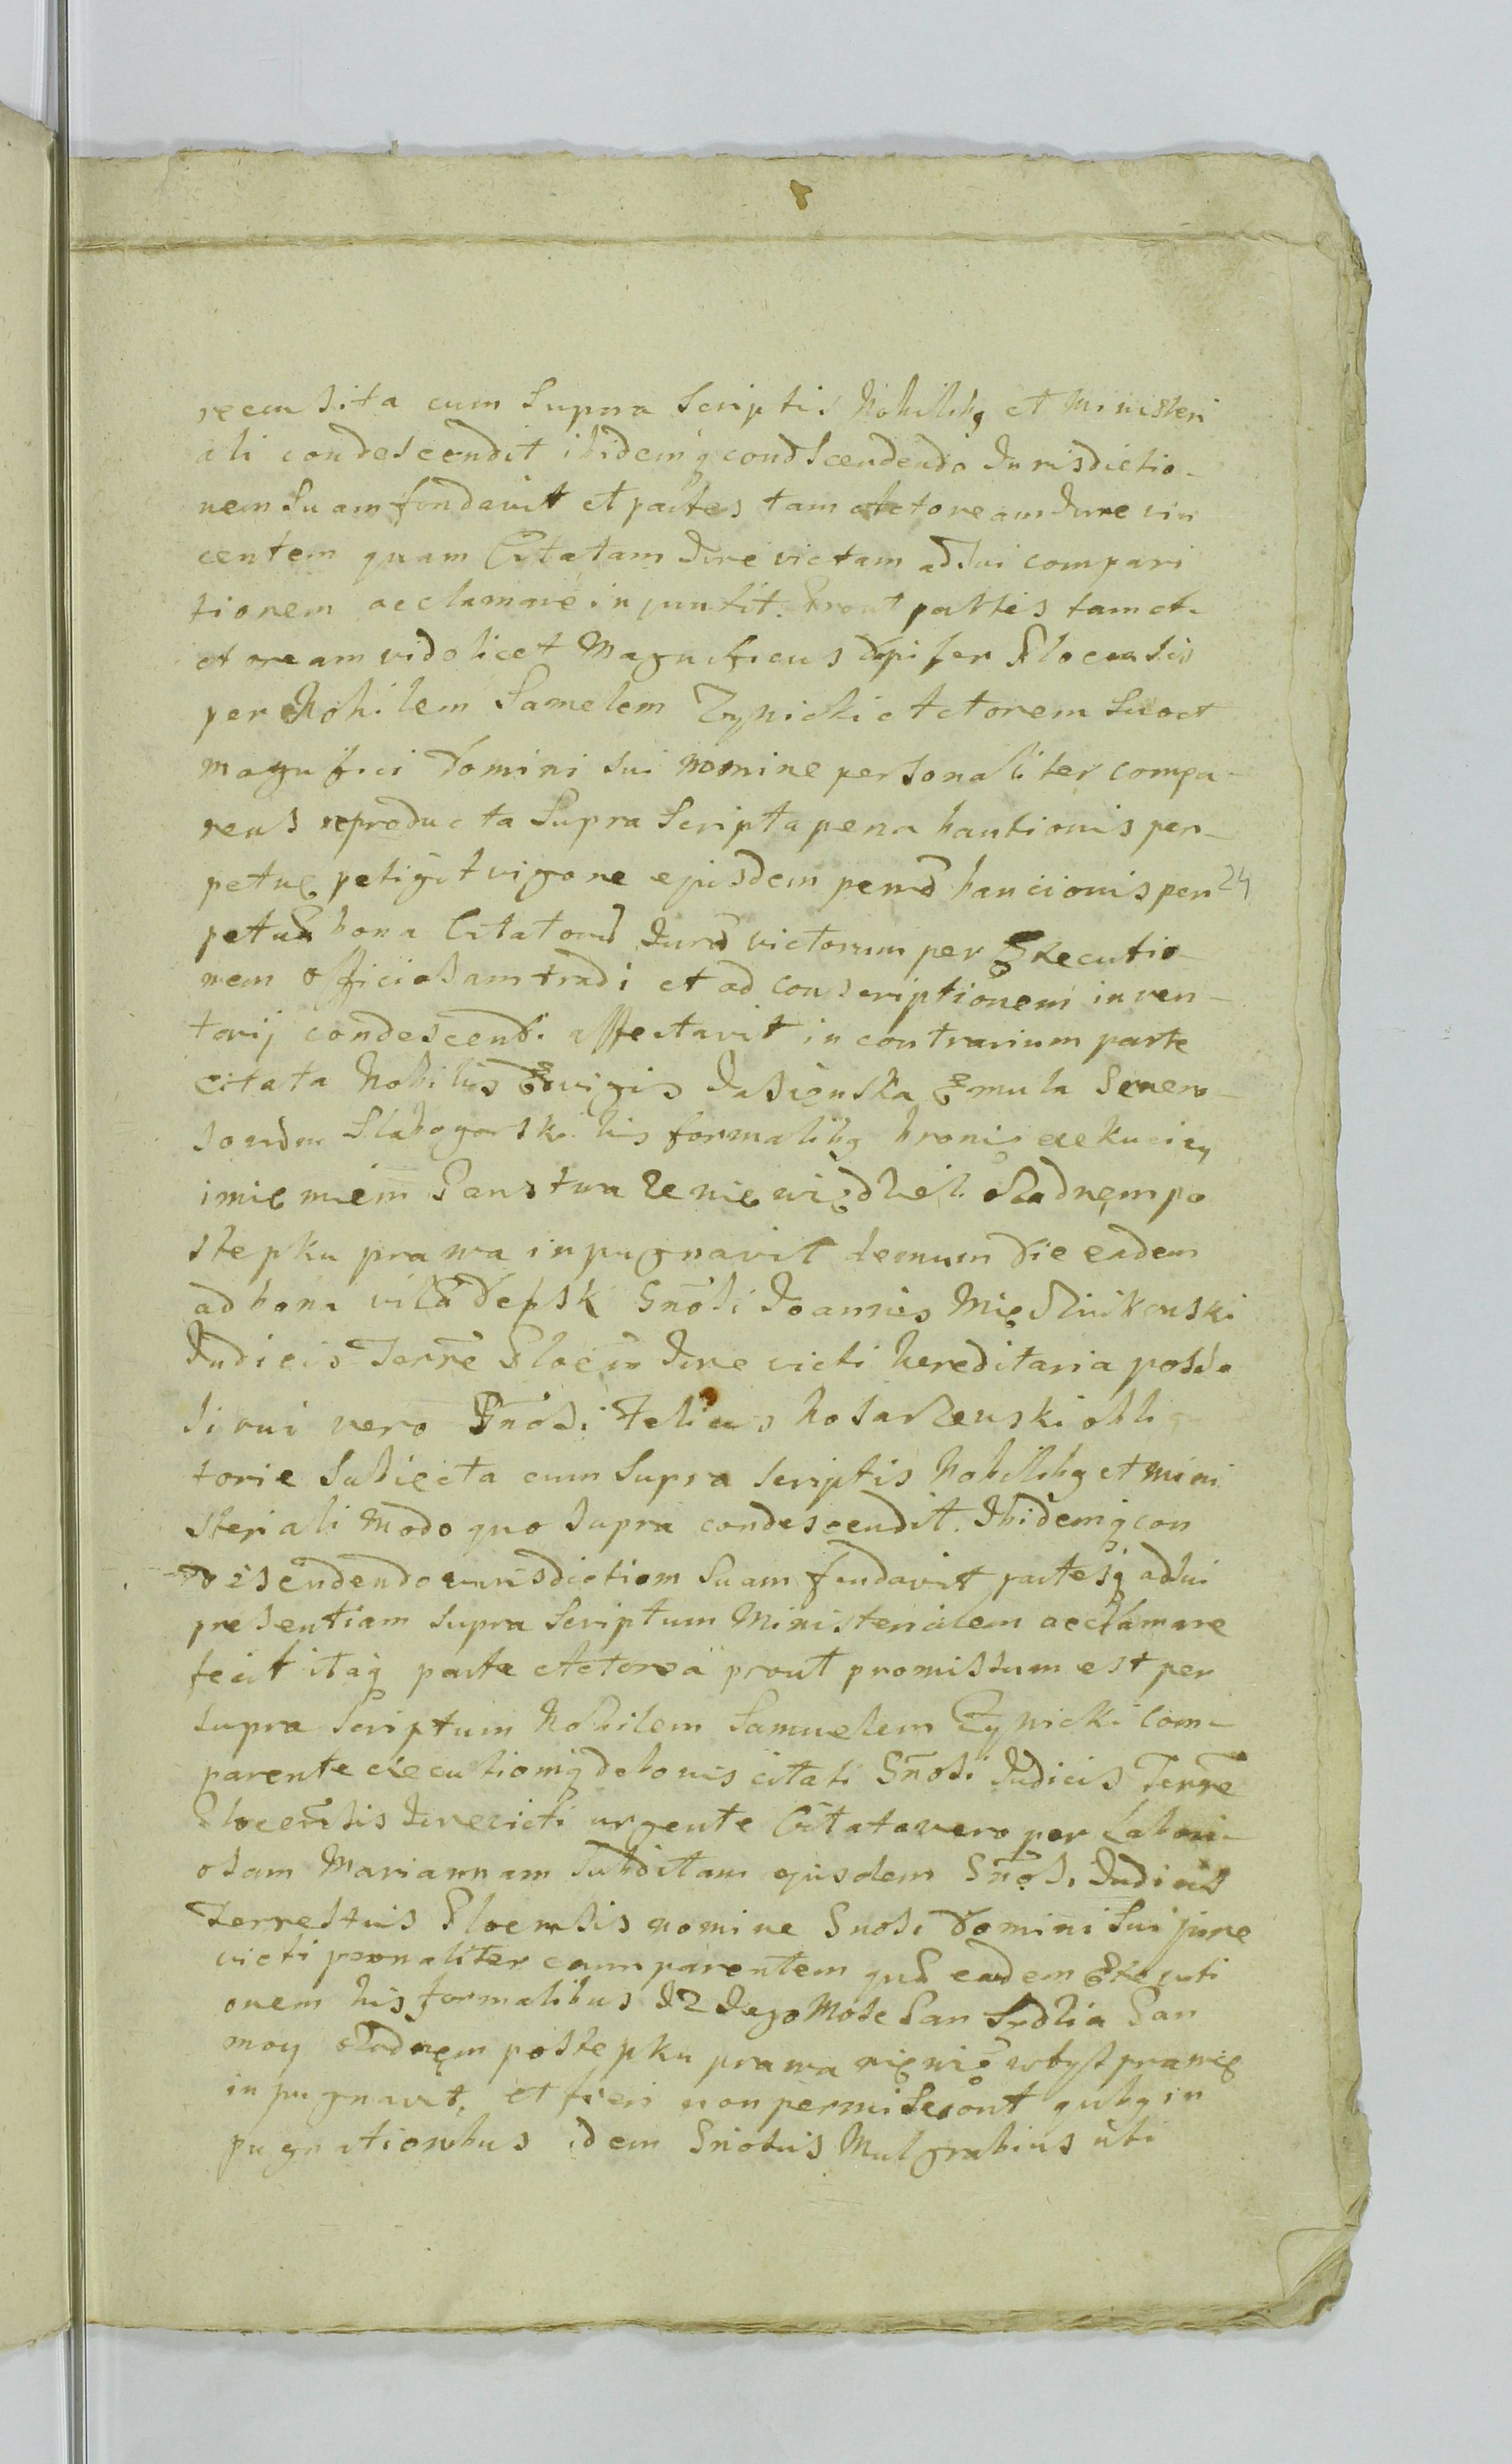 recensita cum Supra Scriptis Nobilibq et Ministeri
ali condescendit ibidemq condScendendo Jurisdictio-
nem Suam fondavit et partes tam Actoream Jure vin
centem quam Citatam Jure victam ad Sui compari
tionem acclamare injunxit. Prout partes tam Ac
toream videlicet Magnificus Dapifer Plocensis
per Nobilem Samelem Zynicki Actorem Suo et
Magnifici Domini sui nomine personaliter compa-
rens reproducta Supra Scripta pena bantionis per-
petuę petiÿt vigore ejusdem pene bancionis per 24
petua bona Citatorum Jure victorum per Executio-
nem officiosam tradi et ad conscriptionem inven-
torij condescendi affectavit in contrarium parte
citata Nobilis Edvigis Jasięnska Famula Genero-
sorum Slabogorski his formalibq bronię exekucięy
imięniem Panstwa ze nię więdzieli o Zadnęm po
stepku prawa inpugnavit demum die eadem
ad bona villa Depsk Gnosi Joannis Mięszlinkowski
Judicis Terre Plocen Jure victi hereditaria posse
sivui vero Gnosi Felicis Kosarzewski oblig
torie Subięcta cum Supra Scriptis Nobilibq et Mini
steriali Modo quo Supra condescendit. Ibidemq con
descendendo Jurisdictiom Suam fundavit partesq ad Sui
presentiam Supra Scriptum Ministerialem acclamare
fecit itaq parte Actorea prout promissum est per
Supra Scriptum Nobilem Samuelem Zynicki Com-
parente executionq de bonis citati Gnosi Judicis Terre
Plocensis Jure victi urgente Citata vero per Labori-
osam Mariannam Subditam ejusdem Gnosi Judicis
Terrestris Plocensis nomine Gnosi Domini Sui jure
victi personaliter comparentem que eadem Executi
onem his formalibus IZ Jego Mość Pan Sędzia Pan
moy o Zadnęm postepku prawa nię wię w tyż prawię
inpugnavit, et fieri non permiserunt quibq in
pugnationibus idem Gnosus Mulgrabius uti